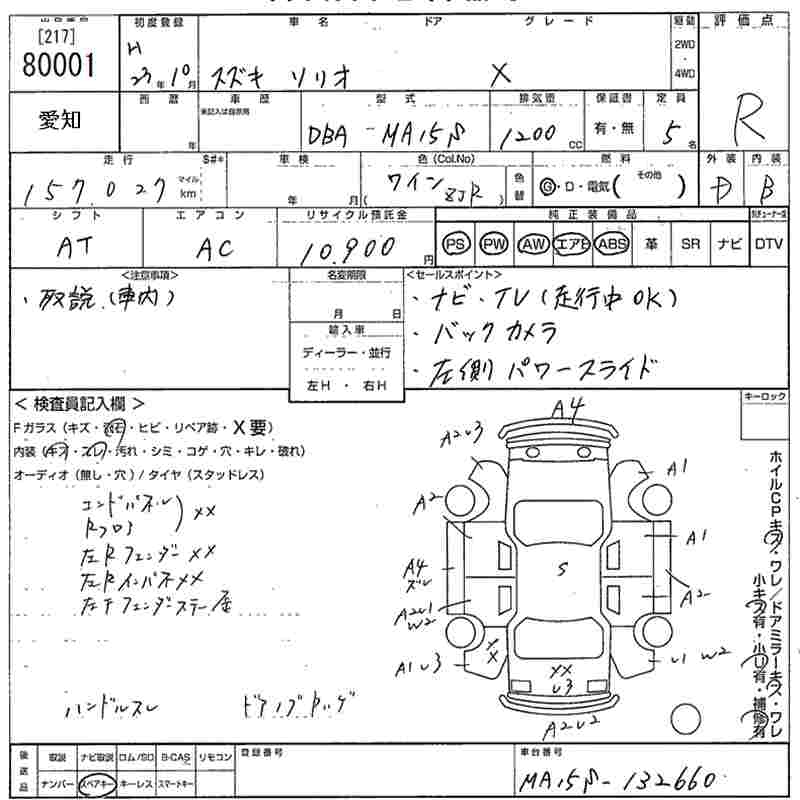 [217]
80001
愛知
初度登録
H
23年10月
車名 ドア グレード
スズキ ソリオ X
駆動
2WD
・
4WD
評価点
R
西暦
年
車歴
未記入は自家用
型式
DBA-MA15S
排気量
1200cc
保証書
有・無
定員
5名
走行
157,027
マイル
km
S#*
車検
年 月
色(Col.No)
ワイン 8JR
色替
燃料
G・D・電気( その他 )
外装
D
内装
B
シフト
AT
エアコン
AC
リサイクル預託金
10,900円
純正装備品
PS PW AW エアB ABS 革 SR ナビ
DTV
<注意事項>
・取説(車内)
名変期限
月 日
輸入車
ディーラー・並行
左H・右H
<セールスポイント>
・ナビ・TV(走行中OK)
・バックカメラ
・左側パワースライド
<検査員記入欄>
Fガラス(キズ・飛石・ヒビ・リペア跡・X要)
内装(キズ・スレ・汚れ・シミ・コゲ・穴・キレ・破れ)
オーディオ(無し・穴)/タイヤ(スタッドレス)
エンドパネル
Rフロア
)××
左Rフェンダー××
左Rインパネ××
ハンドルスレ
キーロック
A4
A2U3
A1
A2
A1
A4
ズレ
S
A2
A2U1
W2
××
A1U3
××
U3
U1 W2
A2U2
ホイルCPキズ・ワレ/ドアミラーキズ・ワレ
小キズ有・小U有・補修有
後送品
取説 ナビ取説 ロム/SD B-CAS リモコン
ナンバー スペアキー キーレス スマートキー
登録番号
車台番号
MA15S-132660